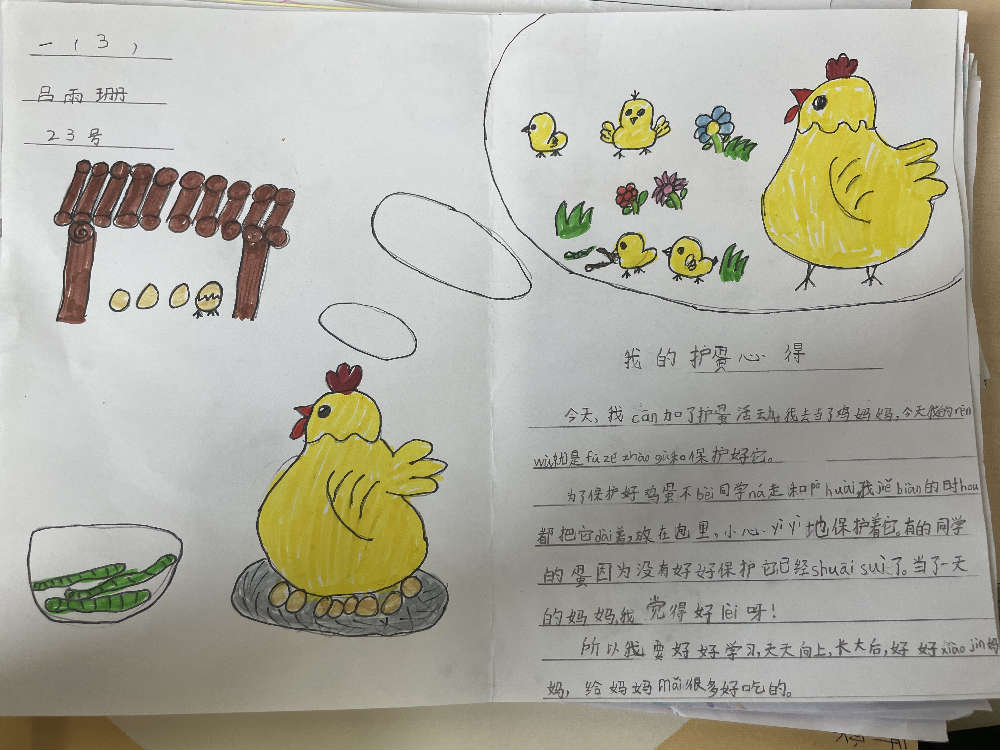 一（3）
吕雨珊
23号
我的护蛋心得
今天,我cān加了护蛋活动。我去当了鸡妈妈,今天我的rèn
wù就是fù zé zhào gù和保护好它。
为了保护好鸡蛋不bèi同学ná走和pò huài,我jiē biān的时hou
都把它dài着,放在包里,小心yì yì地保护着它。有的同学
的蛋因为没有好好保护它已经shuāi suì了。当了一天
的妈妈,我觉得好lèi呀！
所以我要好好学习,天天向上,长大后,好好xiào jìn妈
妈,给妈妈mǎi很多好吃的。